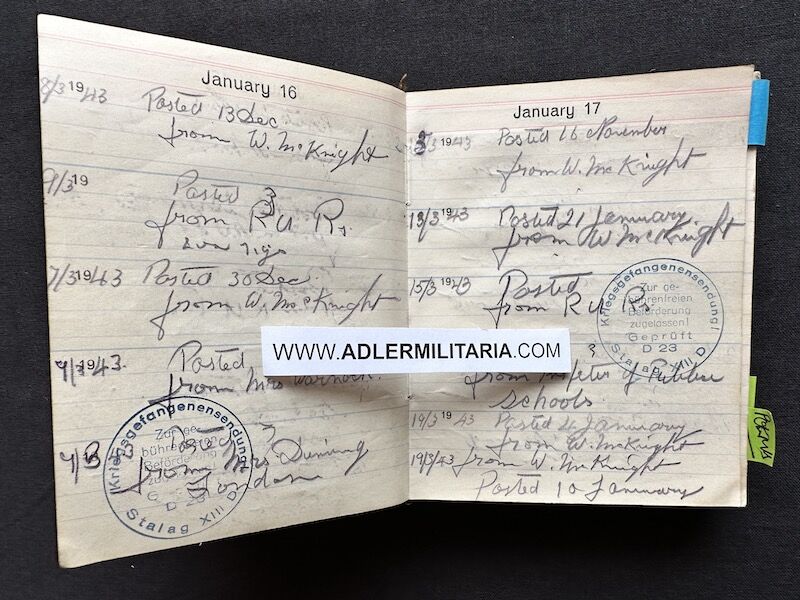 January 16
8/3 1943 Posted 13 Dec
from W. McKnight
9/3 19 Posted 3
from R U Rs.
7/3 1943 Posted 30 Dec.
from W. McKnight
9/3 1943. Posted
from Mrs Warnock.
9/3
from Mrs Dining
London
Kriegsgefangenensendung!
Zur ge-
bührenfreien
Beförderung
D 23
Stalag XIII D
WWW.ADLERMILITARIA.COM
January 17
/3 1943 Posted 16 November
from W. McKnight
13/3 1943 Posted 21 January
from W McKnight
15/3 1943 Posted
from R U Rs
from of Public
Schools.
19/3 1943 Posted 24 January
from W. McKnight
19/3/43 from W. McKnight
Posted 10 January
Kriegsgefangenensendung!
Zur ge-
bührenfreien
Beförderung
zugelassen!
Geprüft
D 23
Stalag XIII D
POEMS